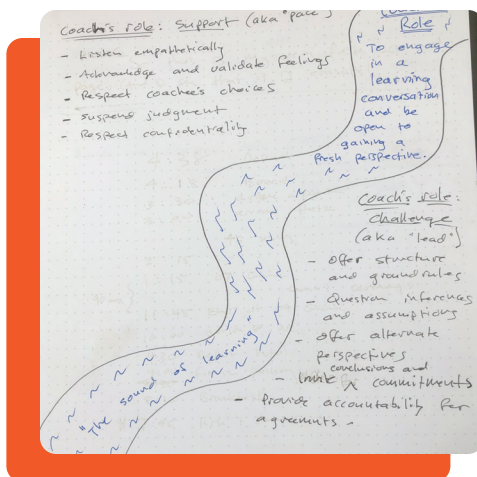 Coach's role: Support (aka "pace")
- Listen empathetically
- Acknowledge and validate feelings
- Respect coachee's choices
- suspend judgment
- Respect confidentiality
Role
To engage
in a
learning
conversation
and be
open to
gaining a
fresh perspective.
Coach's role:
Challenge
(aka "lead")
- Offer structure
and groundrules
- Question inferences
and assumptions
- Offer alternate
perspectives
conclusions and
- Invite ^ commitments
- Provide accountability for
agreements -
"The sound of learning"